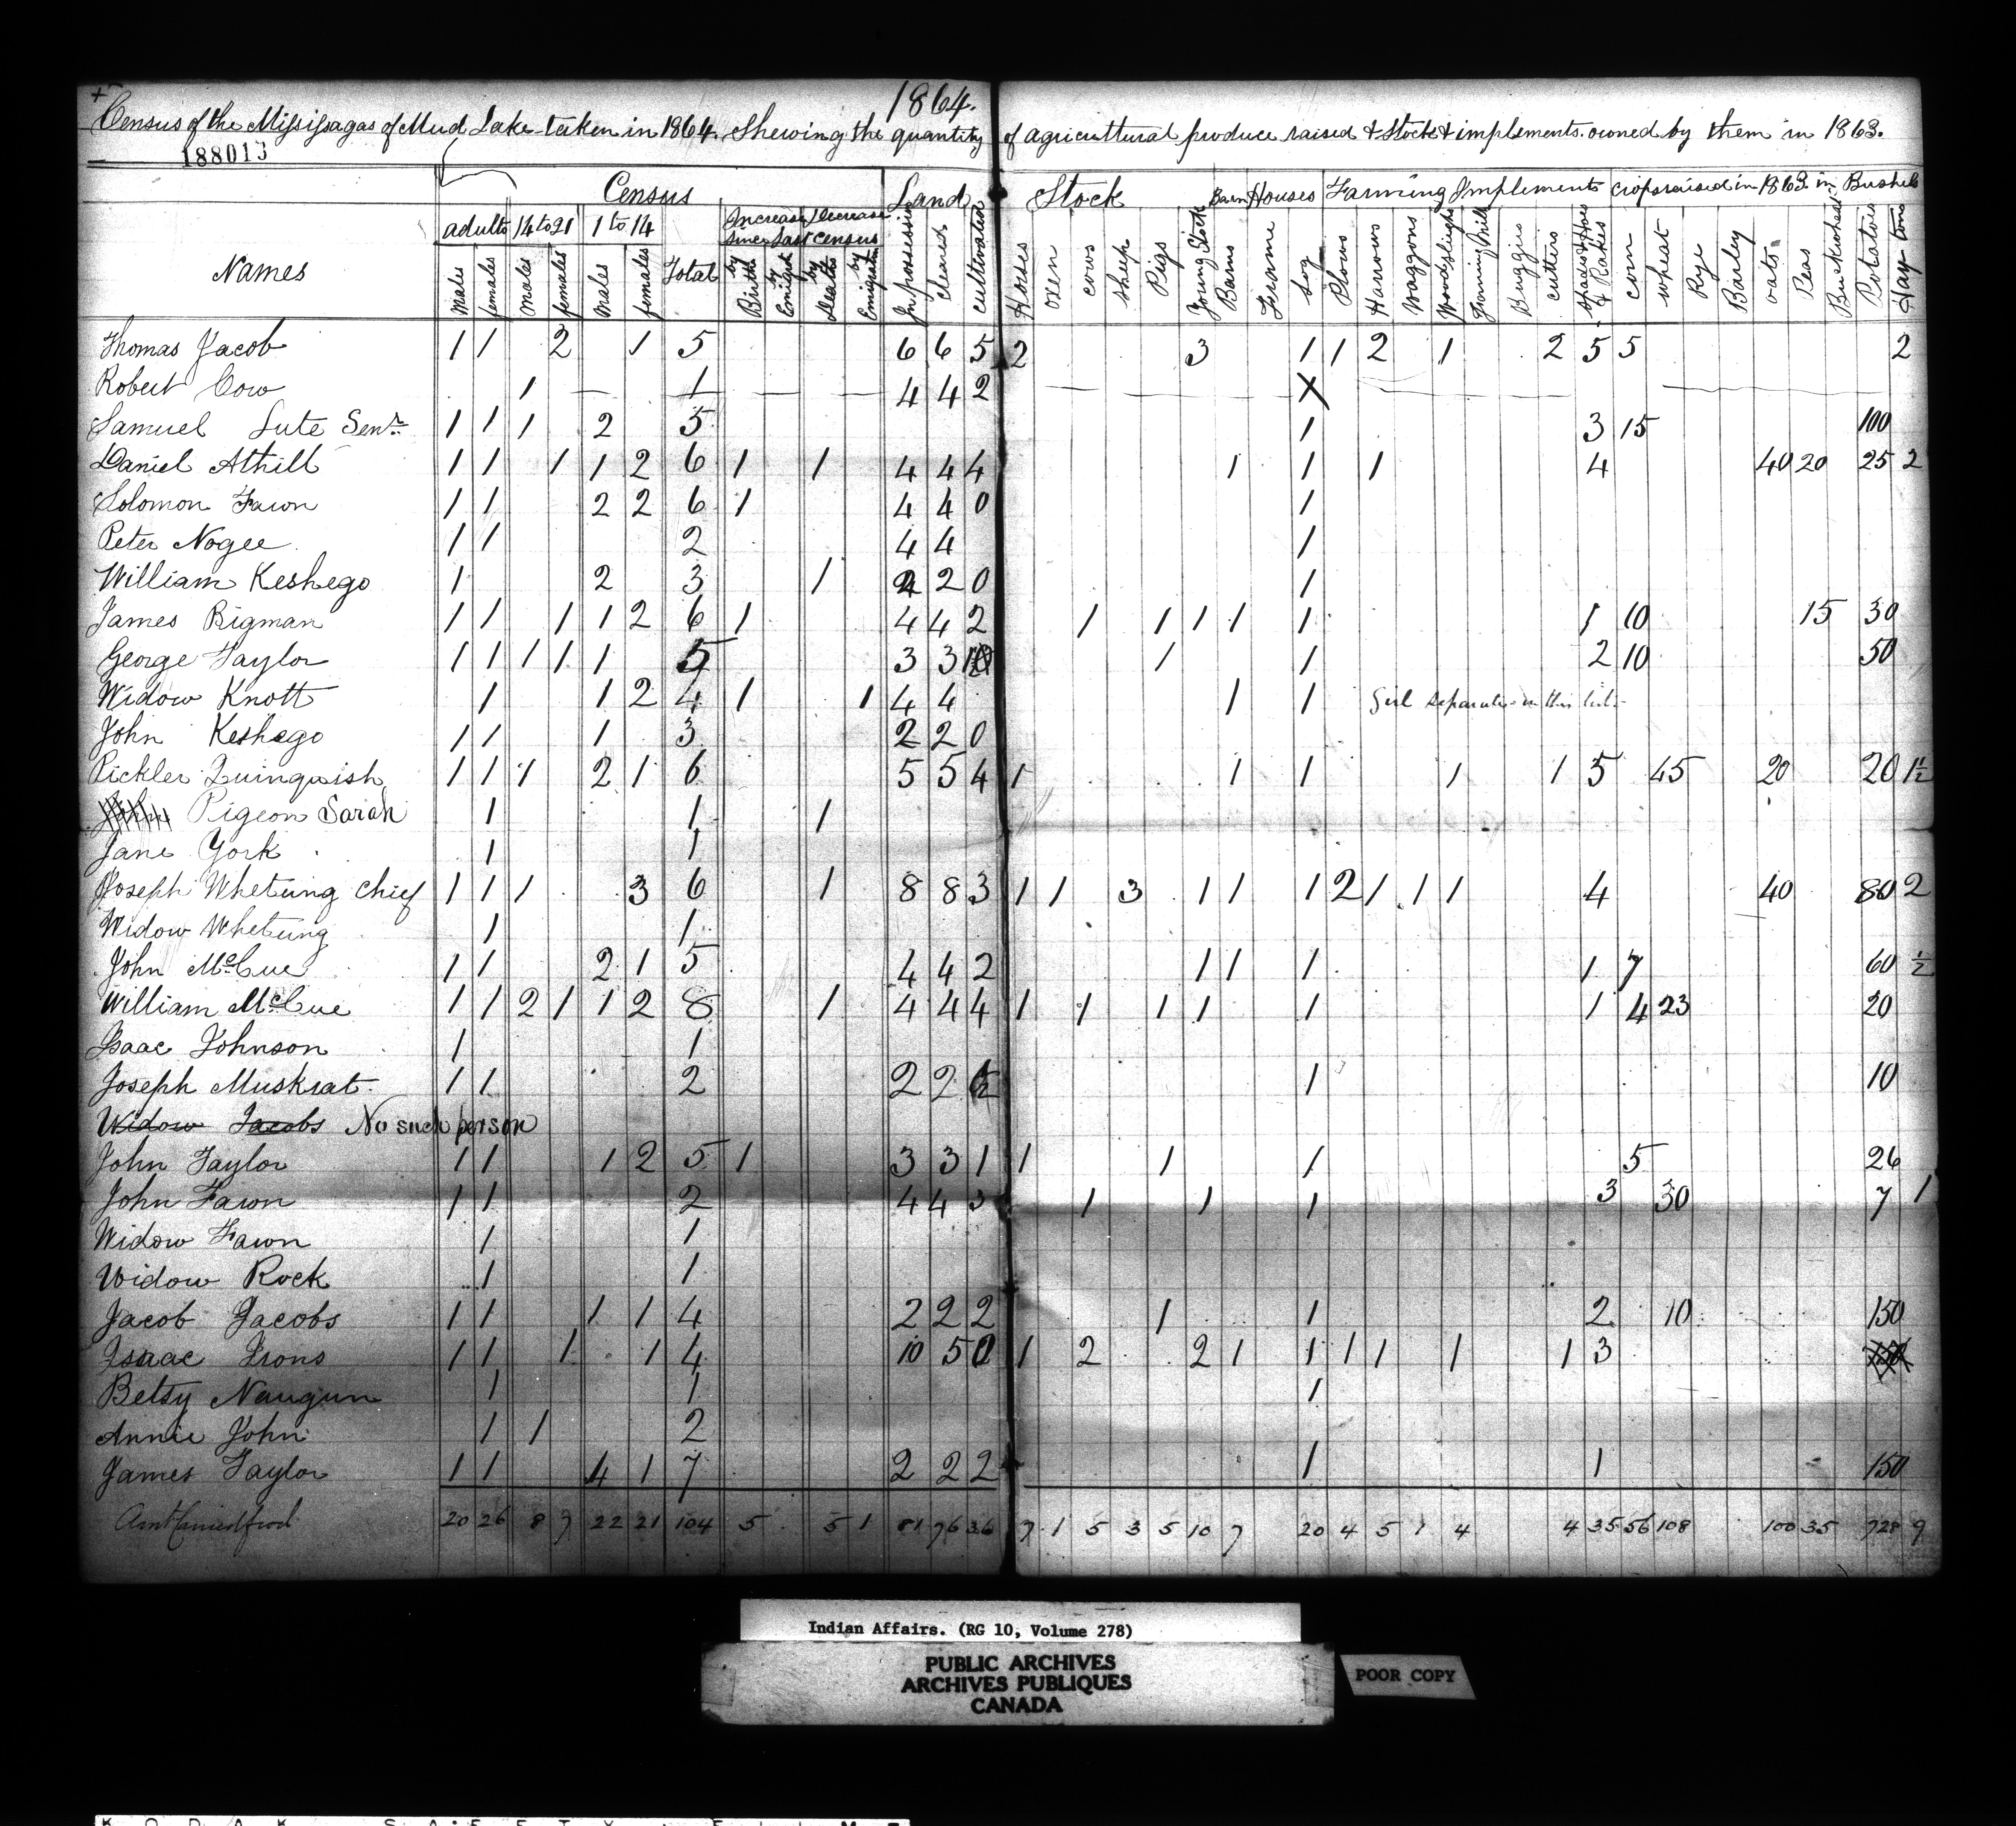 1864.
Census of the Missisagas of Mud Lake taken in 1864. Shewing the quantity of agricultural produce raised & Stock & implements owned by them in 1863.
188013
Census Land Stock Barn Houses Farming Implements crops raised in 1863 in Bushels
adults 14 to 21 1 to 14 Increase Decrease since last census
Names Males females Males females Males females Total by Births by Emigrat by Deaths by Emigration In possession cleared cultivated Horses oxen cows sheep Pigs Young Stock Barns Frame Log Plows Harrows Waggons Woodsleighs Fanning Mill Buggies cutters spades Hoes & Rakes corn wheat Rye Barley oats Peas Buckwheat Potatoes Hay tons
Thomas Jacob 1 1 2 1 5 6 6 5 2 3 1 1 2 1 2 5 5 2
Robert Cow 1 1 4 4 2 X
Samuel Lute Senr 1 1 1 2 5 1 3 15 100
Daniel Athill 1 1 1 1 2 6 1 1 4 4 4 1 1 1 4 40 20 25 2
Solomon Fawn 1 1 2 2 6 1 4 4 0 1
Peter Nogee 1 1 2 4 4 1
William Keshego 1 2 3 1 2 2 0 1
James Bigman 1 1 1 1 2 6 1 4 4 2 1 1 1 1 1 1 10 15 30
George Taylor 1 1 1 1 1 5 3 3 1 1 2 10 50
Widow Knott 1 1 2 4 1 1 4 4 1 1 Girl separate in this list
John Keshego 1 1 1 3 2 2 0
Pickler Quinquish 1 1 1 2 1 6 5 5 4 1 1 1 1 1 5 45 20 20 1½
John Pigeon Sarah 1 1 1
Jane York 1 1
Joseph Whetung Chief 1 1 1 3 6 1 8 8 3 1 1 3 1 1 1 2 1 1 1 4 40 80 2
Widow Whetung 1 1
John McCue 1 1 2 1 5 4 4 2 1 1 1 1 7 60 ½
William McCue 1 1 2 1 1 2 8 1 4 4 4 1 1 1 1 1 1 4 23 20
Isaac Johnson 1 1
Joseph Muskrat 1 1 2 2 2 1 10
Widow Jacobs No such person
John Taylor 1 1 1 2 5 1 3 3 1 1 1 1 5 26
John Fawn 1 1 2 4 4 3 1 1 1 3 30 7 1
Widow Fawn 1 1
Widow Rock 1 1
Jacob Jacobs 1 1 1 1 4 2 2 2 1 1 2 10 150
Isaac Irons 1 1 1 1 4 10 5 0 1 2 2 1 1 1 1 1 1 3 150
Betsy Naugun 1 1 1
Annie John 1 1 2
James Taylor 1 1 4 1 7 2 2 2 1 1 150
Amt Carried fwd 20 26 8 7 22 21 104 5 5 1 81 76 36 7 1 5 3 5 10 7 20 4 5 1 4 4 35 56 108 100 35 728 9
Indian Affairs. (RG 10, Volume 278)
PUBLIC ARCHIVES
ARCHIVES PUBLIQUES
CANADA
POOR COPY